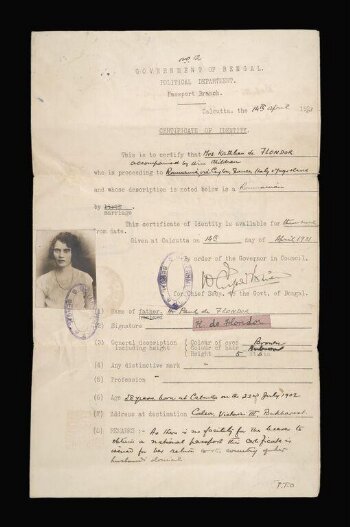 No 2
GOVERNMENT OF BENGAL.
POLITICAL DEPARTMENT.
Passport Branch.
Calcutta, the 14th April 1931
CERTIFICATE OF IDENTITY.
This is to certify that Mrs de FLONDOR
accompanied by three children
who is proceeding to Roumania via Ceylon Italy Jugoslavia
and whose description is noted below is a Roumanian
by birth
marriage
This certificate of Identity is available for
from date.
Given at Calcutta on 14th day of April 1931
By order of the Governor in Council,
for Chief Secy. to the Govt. of Bengal.
(1) Name of father. Paul de FLONDOR
husband
(2) Signature K. de Flondor
(3) General description Colour of eyes Brown
including height Colour of hair
Height 5
(4) Any distinctive mark
(5) Profession
(6) Age 28 years born at Calcutta on the 22nd July 1902
(7) Address at destination Calea Victoria Bukharest
(8) REMARKS :- As there is no facility for the bearer to
obtain a national passport this certificate is
issued for her return to the country of her
husband's domicile.
P.T.O